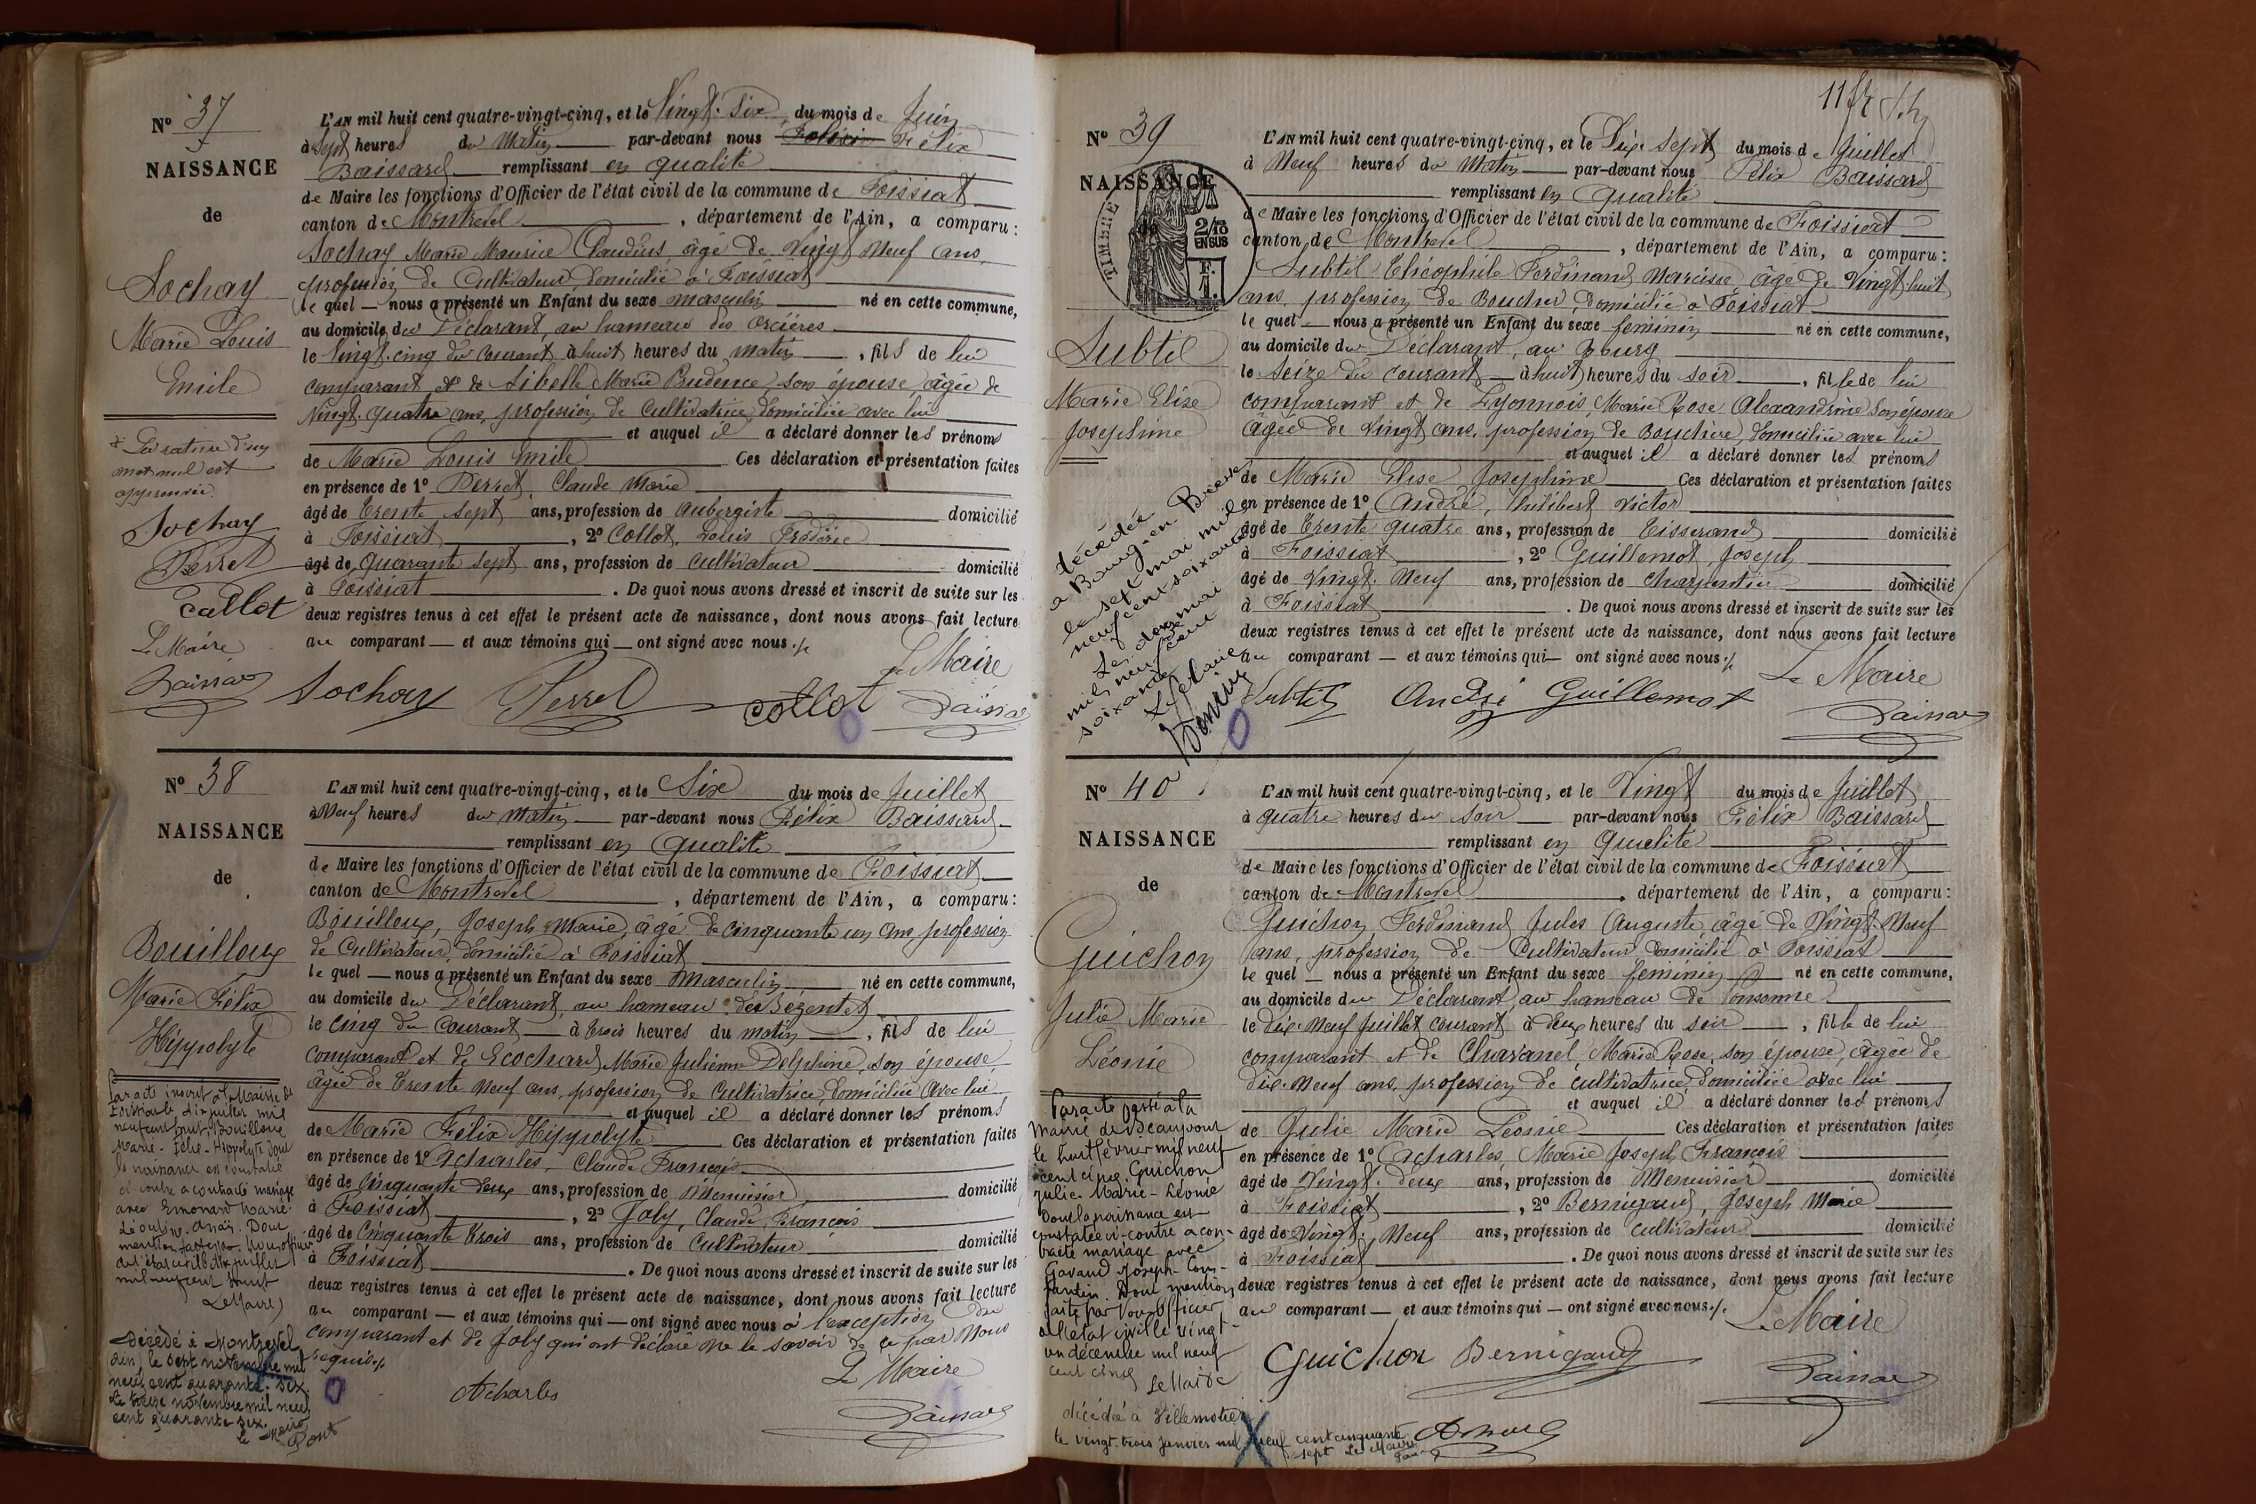 Nº 37
NAISSANCE
de
Sochay
Marie Louis
Emile
La rature d'un
mot nul est
approuvée.
Sochay
Perret
Collot
Le Maire
L'AN mil huit cent quatre-vingt-cinq, et le Vingt-Six du mois de Juin
à Sept heures du Matin par-devant nous Félix
Baissard remplissant en qualité
de Maire les fonctions d'Officier de l'état civil de la commune de Foissiat
canton de Montrevel, département de l'Ain, a comparu:
Sochay Marie Maurice Claudius, âgé de Vingt Neuf ans,
profession de Cultivateur, domicilié à Foissiat
le quel nous a présenté un Enfant du sexe masculin né en cette commune,
au domicile du Déclarant, au hameau des Orcières
le Vingt-cinq du Courant à huit heures du matin, fils de lui
comparant et de Sibelle Marie Prudence, son épouse, âgée de
Vingt-quatre ans, profession de Cultivatrice domiciliée avec lui
et auquel il a déclaré donner les prénoms
de Marie Louis Emile Ces déclaration et présentation faites
en présence de 1º Perret, Claude Marie
âgé de trente sept ans, profession de Aubergiste domicilié
à Foissiat, 2º Collot, Louis Frédéric
âgé de quarante sept ans, profession de Cultivateur domicilié
à Foissiat. De quoi nous avons dressé et inscrit de suite sur les
deux registres tenus à cet effet le présent acte de naissance, dont nous avons fait lecture
au comparant et aux témoins qui ont signé avec nous.
Le Maire
Sochay Perret Collot
Nº 38
NAISSANCE
de
Bouilloux
Marie Félix
Hippolyte
Par acte inscrit à la Mairie de
Foissiat le dix juillet mil
neuf cent huit, Bouilloux
Marie-Félix-Hippolyte dont
la naissance est constatée
ci-contre a contracté mariage
avec Emonard Marie-
Dont
mention faite par Nous officier
de l'état civil le dix juillet
mil neuf cent huit
Le Maire
Décédé à Montrevel
Ain, le sept novembre mil
neuf cent quarante-six.
Le treize novembre mil neuf
cent quarante six.
Le Maire
Pont
L'AN mil huit cent quatre-vingt-cinq, et le Six du mois de Juillet
à Neuf heures du Matin par-devant nous Félix Baissard
remplissant en qualité
de Maire les fonctions d'Officier de l'état civil de la commune de Foissiat
canton de Montrevel, département de l'Ain, a comparu:
Bouilloux, Joseph Marie, âgé de cinquante un ans, profession
de Cultivateur, domicilié à Foissiat
le quel nous a présenté un Enfant du sexe Masculin né en cette commune,
au domicile du Déclarant, au hameau des Bézentet
le Cinq du Courant à trois heures du matin, fils de lui
comparant et de Ecochard, Marie Julienne Delphine, son épouse,
âgée de trente Neuf ans, profession de Cultivatrice, domiciliée avec lui
et auquel il a déclaré donner les prénoms
de Marie Félix Hippolyte Ces déclaration et présentation faites
en présence de 1º Acharles, Claude François
âgé de Cinquante deux ans, profession de Menuisier domicilié
à Foissiat, 2º Joly, Claude François
âgé de Cinquante trois ans, profession de Cultivateur domicilié
à Foissiat. De quoi nous avons dressé et inscrit de suite sur les
deux registres tenus à cet effet le présent acte de naissance, dont nous avons fait lecture
au comparant et aux témoins qui ont signé avec nous à l'exception du
comparant et de Joly qui ont déclaré ne le savoir de ce par Nous
requis.
Le Maire
Acharles
Nº 39
NAISSANCE
de
TIMBRE
2/10
EN SUS
Subtil
Marie Elise
Joséphine
Décédée
à Bourg-en-Bresse
le sept mai mil
neuf cent soixante
Le douze mai
mil neuf cent
soixante
Le Maire
L'AN mil huit cent quatre-vingt-cinq, et le Dix Sept du mois de Juillet
à Neuf heures du Matin par-devant nous Félix Baissard
remplissant en qualité
de Maire les fonctions d'Officier de l'état civil de la commune de Foissiat
canton de Montrevel, département de l'Ain, a comparu:
Subtil Théophile Ferdinand Narcisse, âgé de Vingt-huit
ans, profession de Boucher, domicilié à Foissiat
le quel nous a présenté un Enfant du sexe féminin né en cette commune,
au domicile du Déclarant, au Bourg
le Seize du courant à huit heures du soir, fille de lui
comparant et de Lyonnois, Marie Rose Alexandrine son épouse
âgée de Vingt ans, profession de Bouchère, domiciliée avec lui
et auquel il a déclaré donner les prénoms
de Marie Elise Joséphine Ces déclaration et présentation faites
en présence de 1º André, Philibert Victor
âgé de trente quatre ans, profession de Tisserand domicilié
à Foissiat, 2º Guillemot, Joseph
âgé de Vingt-Neuf ans, profession de Charpentier domicilié
à Foissiat. De quoi nous avons dressé et inscrit de suite sur les
deux registres tenus à cet effet le présent acte de naissance, dont nous avons fait lecture
au comparant et aux témoins qui ont signé avec nous.
Le Maire
Subtil André Guillemot
Nº 40
NAISSANCE
de
Guichon
Julie Marie
Léonie
Par acte passé à la
Mairie de Beaupont
le huit février mil neuf
cent cinq, Guichon
Julie-Marie-Léonie
dont la naissance est
constatée ci-contre a con-
tracté mariage avec
Gavand Joseph-Cons-
tantin. Dont mention
faite par Nous officier
de l'état civil le vingt-
un décembre mil neuf
cent cinq
Le Maire
décédée à Villemotier
le vingt-trois janvier mil neuf cent cinquante
sept Le Maire
L'AN mil huit cent quatre-vingt-cinq, et le Vingt du mois de Juillet
à quatre heures du Soir par-devant nous Félix Baissard
remplissant en qualité
de Maire les fonctions d'Officier de l'état civil de la commune de Foissiat
canton de Montrevel, département de l'Ain, a comparu:
Guichon, Ferdinand Jules Auguste, âgé de Vingt-Neuf
ans, profession de Cultivateur domicilié à Foissiat
le quel nous a présenté un Enfant du sexe féminin né en cette commune,
au domicile du Déclarant, au hameau de Sonsonne
le Dix-Neuf Juillet courant à deux heures du soir, fille de lui
comparant et de Charanel, Marie Rose, son épouse, âgée de
dix-Neuf ans, profession de cultivatrice domiciliée avec lui
et auquel il a déclaré donner les prénoms
de Julie Marie Léonie Ces déclaration et présentation faites
en présence de 1º Acharles, Marie Joseph François
âgé de Vingt-deux ans, profession de Menuisier domicilié
à Foissiat, 2º Bernigaud, Joseph Marie
âgé de Vingt-Neuf ans, profession de Cultivateur domicilié
à Foissiat. De quoi nous avons dressé et inscrit de suite sur les
deux registres tenus à cet effet le présent acte de naissance, dont nous avons fait lecture
au comparant et aux témoins qui ont signé avec nous.
Le Maire
Guichon Bernigaud